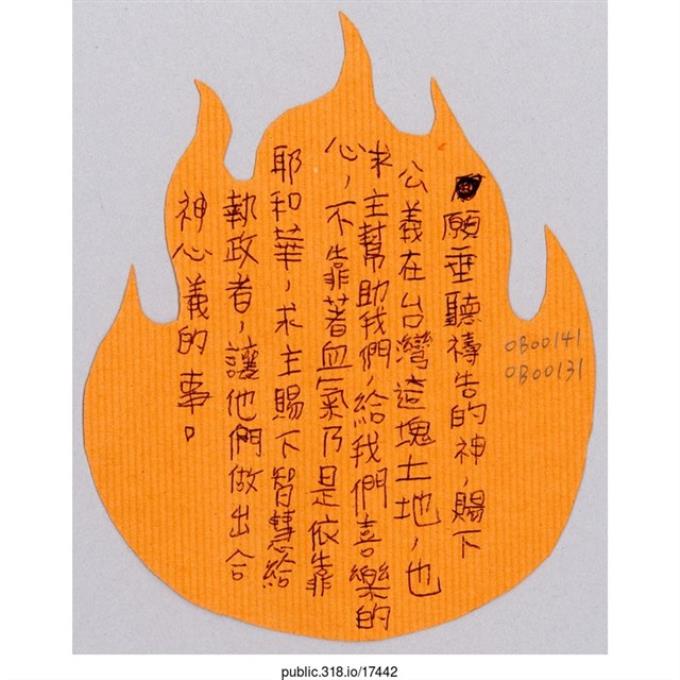 願垂聽禱告的神，賜下
公義在台灣這塊土地，也
求主幫助我們，給我們喜樂的
心，不靠著血氣乃是依靠
耶和華，求主賜下智慧給
執政者，讓他們做出合
神心義的事。
OB00141
OB00131
public.318.io/17442